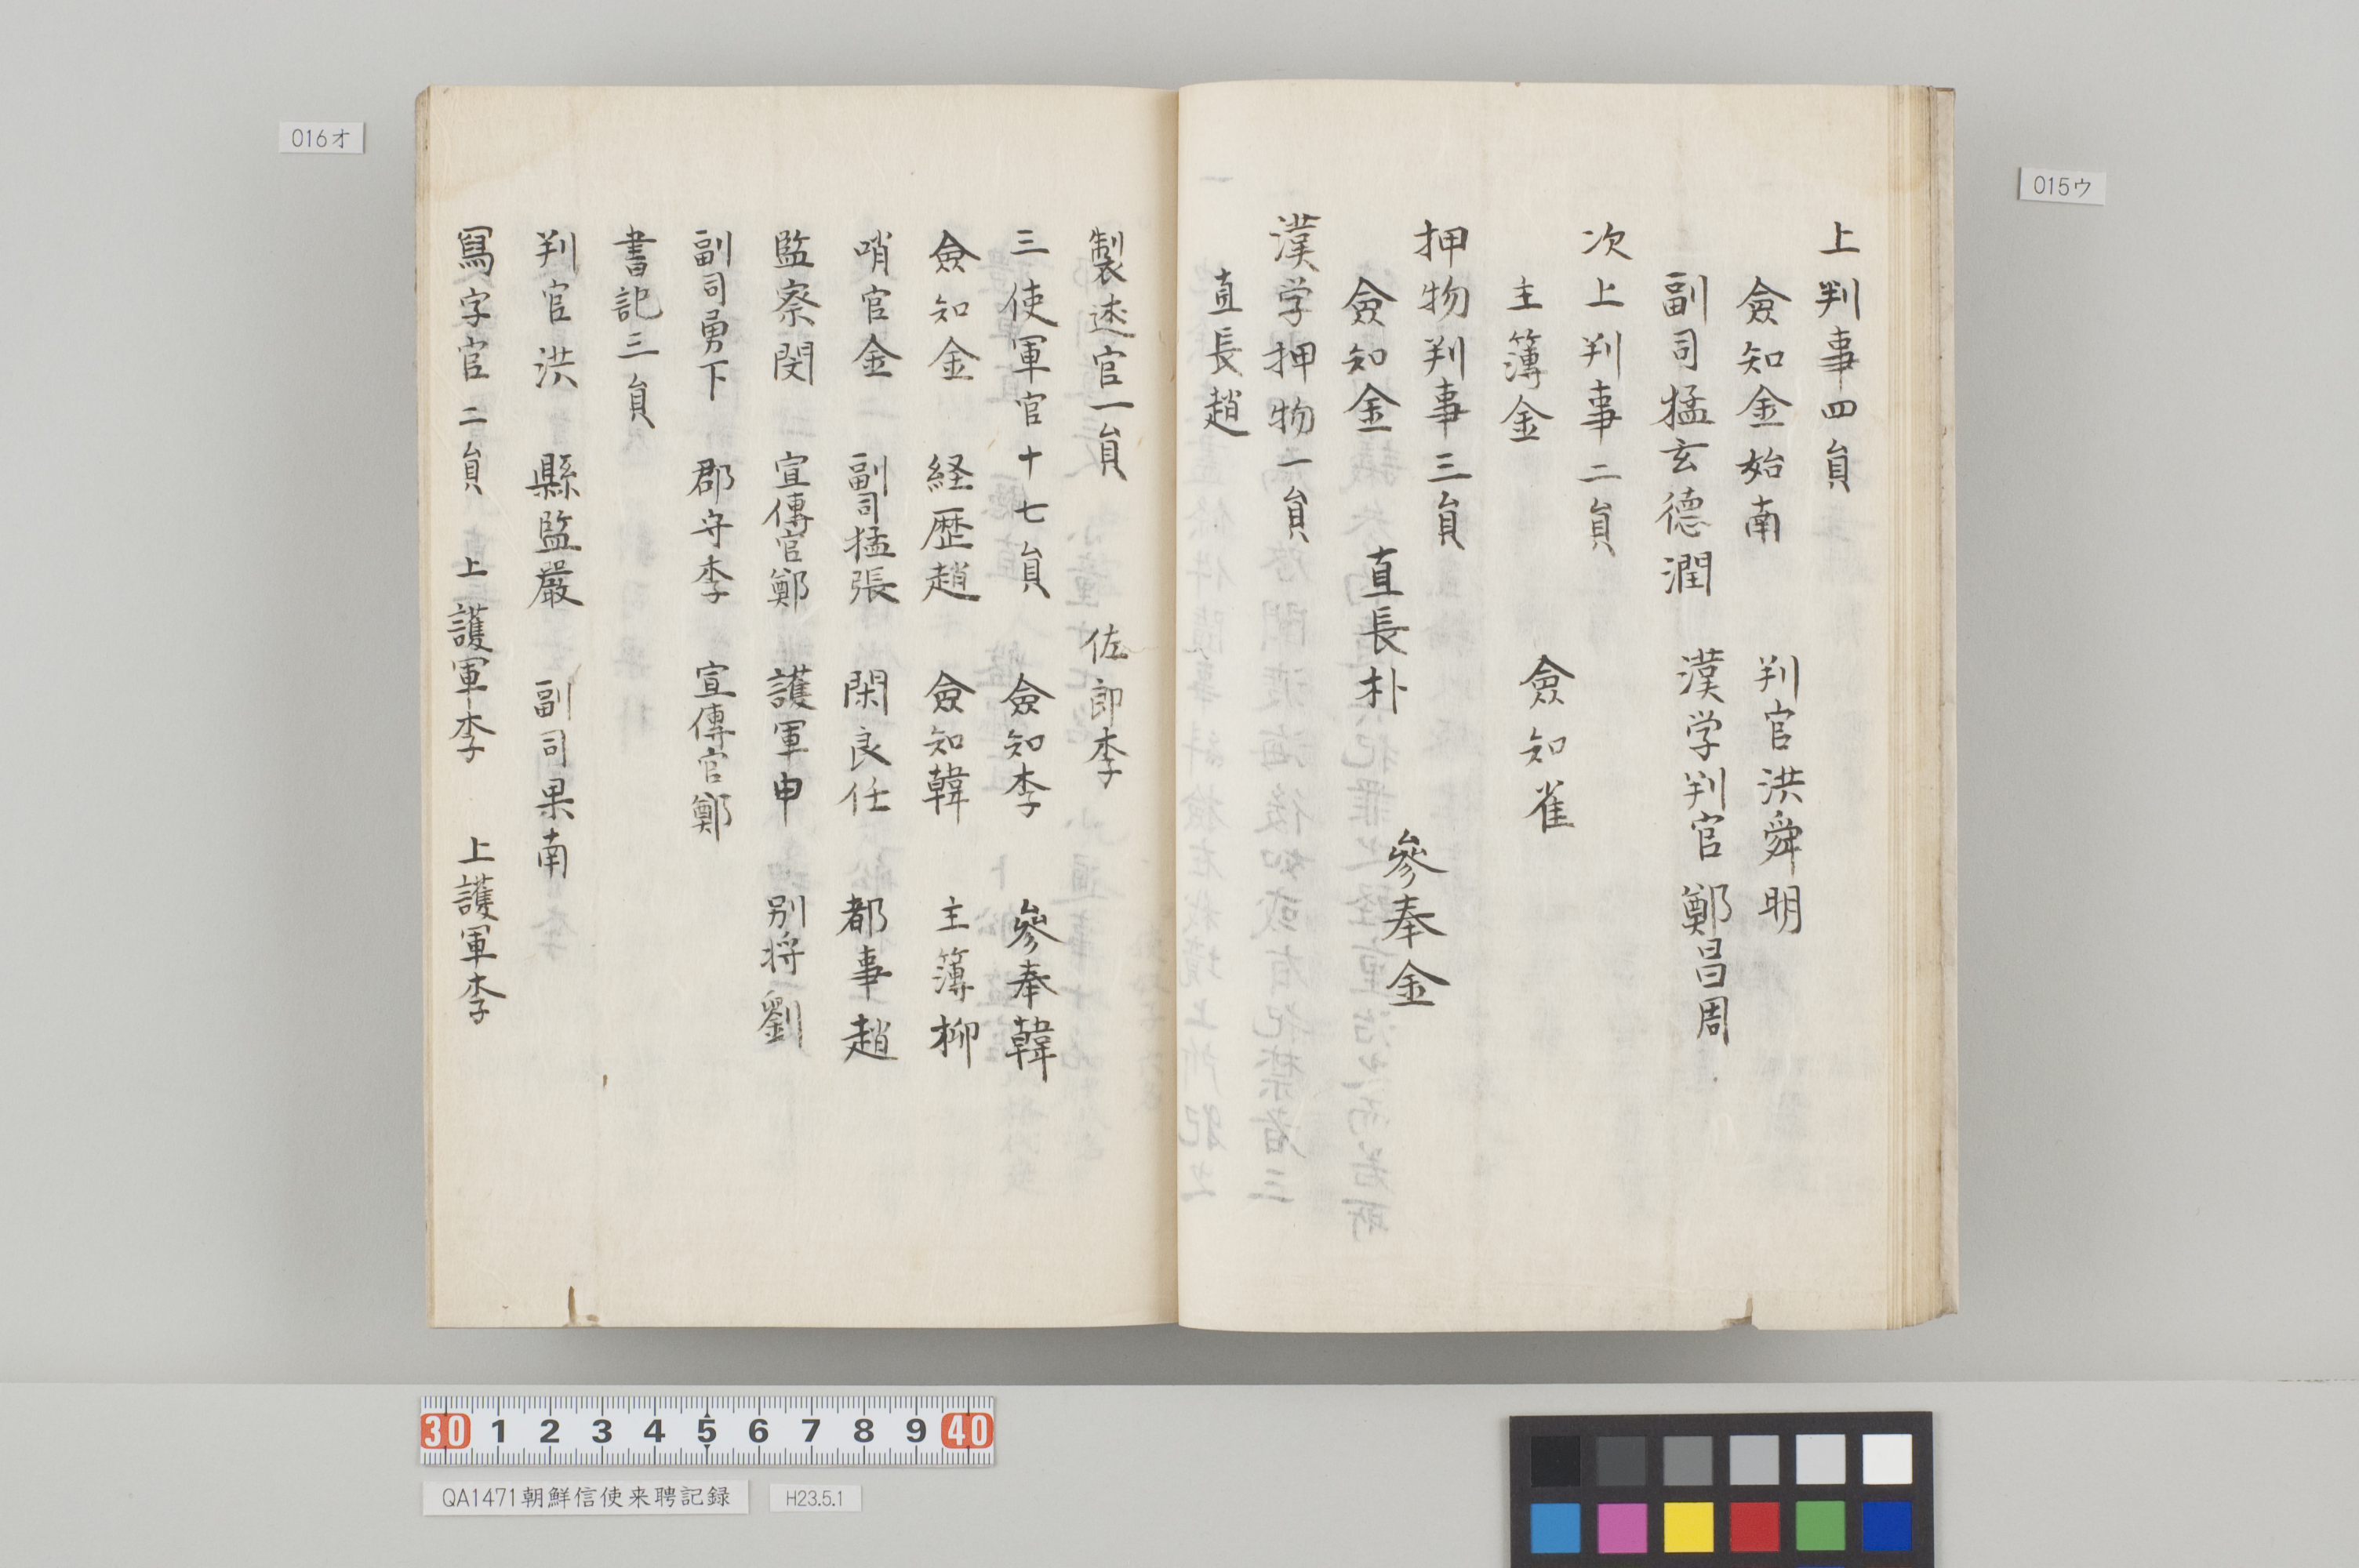 015ウ
上判事四員
僉知金始南 判官洪舜明
副司猛玄德潤 漢学判官鄭昌周
次上判事二員
主簿金 僉知崔
押物判事三員
僉知金 直長朴 參奉金
漢学押物一員
直長趙
016オ
製述官一員 佐郎李
三使軍官十七員 僉知李 參奉韓
僉知金 経歴趙 僉知韓 主簿柳
哨官金 副司猛張 閑良任 都事趙
監察閔 宣傳官鄭 護軍申 別将劉
副司勇下 郡守李 宣傳官鄭
書記三員
判官洪 縣監嚴 副司果南
冩字官二員 上護軍李 上護軍李
30 1 2 3 4 5 6 7 8 9 40
QA1471朝鮮信使来聘記録
H23.5.1